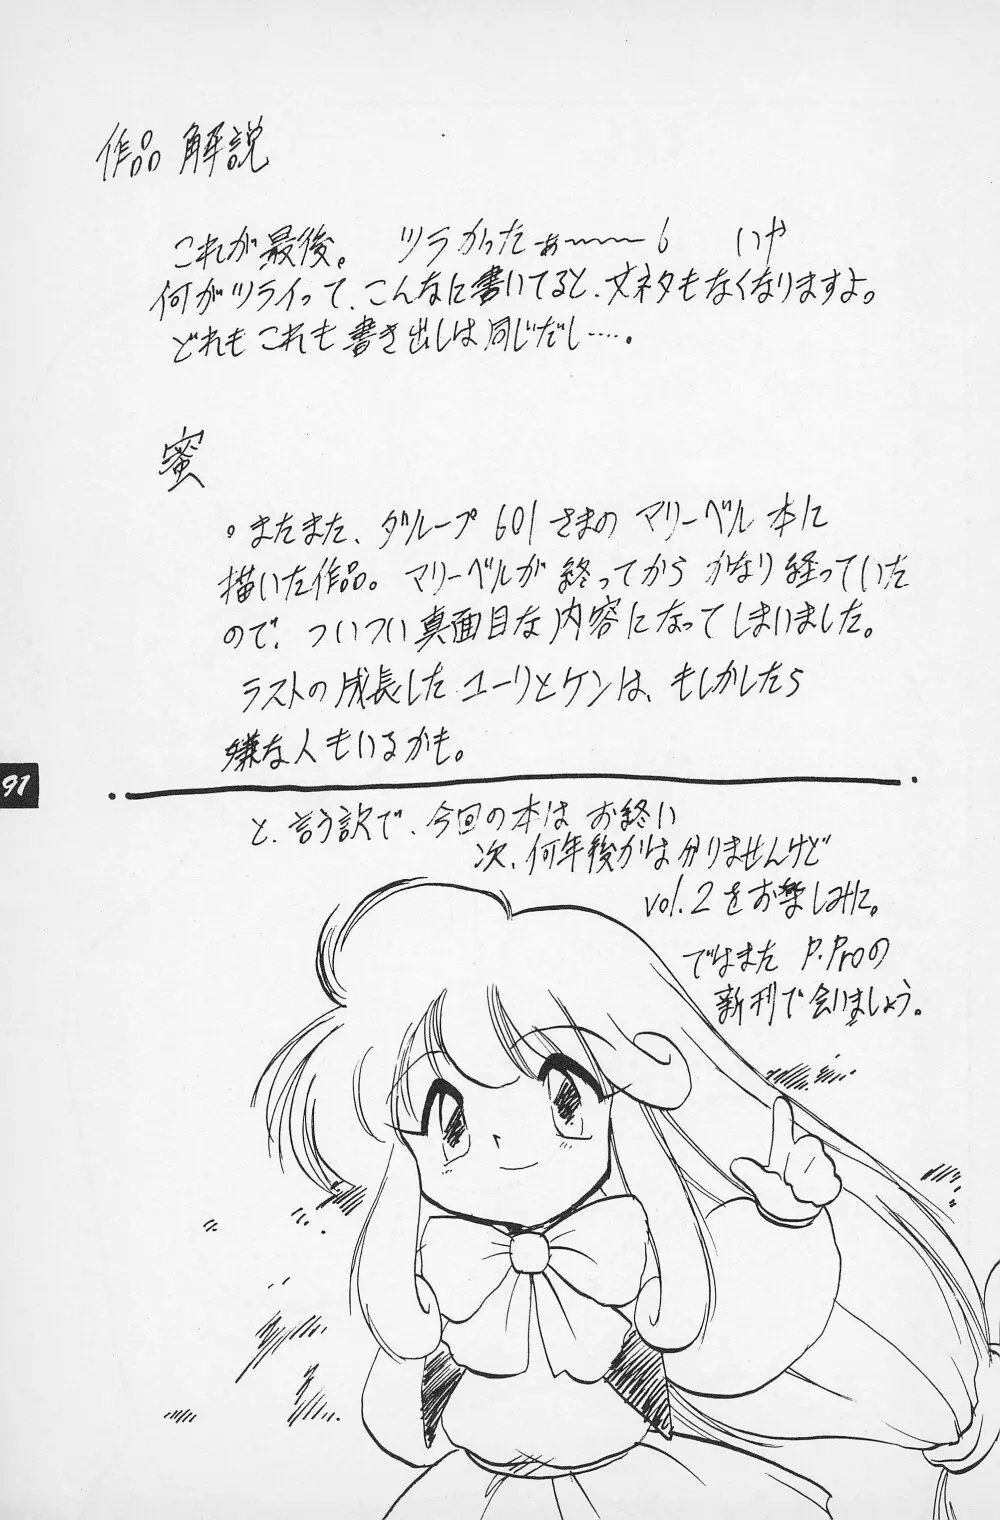 作品 解説
これが最後。 ツラかったぁ〜〜〜6 いや
何がツライって、こんなに書いてると、文ネタもなくなりますよ。
どれもこれも書き出しは同じだし……。
蜜
。またまた、グループ601さまのマリーベル本に
描いた作品。マリーベルが終ってからかなり経っていた
ので、ついつい真面目な内容になってしまいました。
ラストの成長したユーリとケンは、もしかしたら
嫌な人もいるかも。
91
と、言う訳で、今回の本はお終い
次、何年後かは分りませんけど
vol.2をお楽しみに。
ではまた P.Proの
新刊で会いましょう。